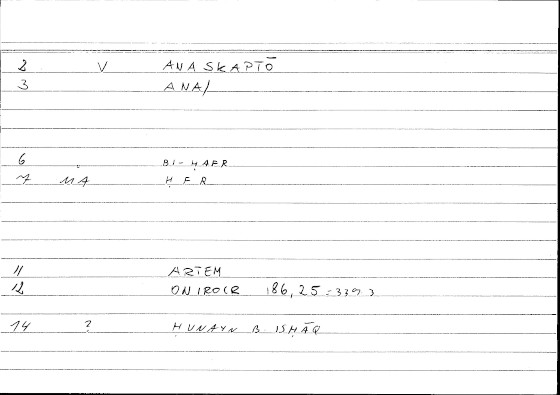 2 V ANASKAPTŌ
3 ANA/
6 BI-ḤAFR
7 MA ḤFR
11 ARTEM
12 ONIROCR 186,25 = 339 3
14 ? ḤUNAYN B ISḤĀQ